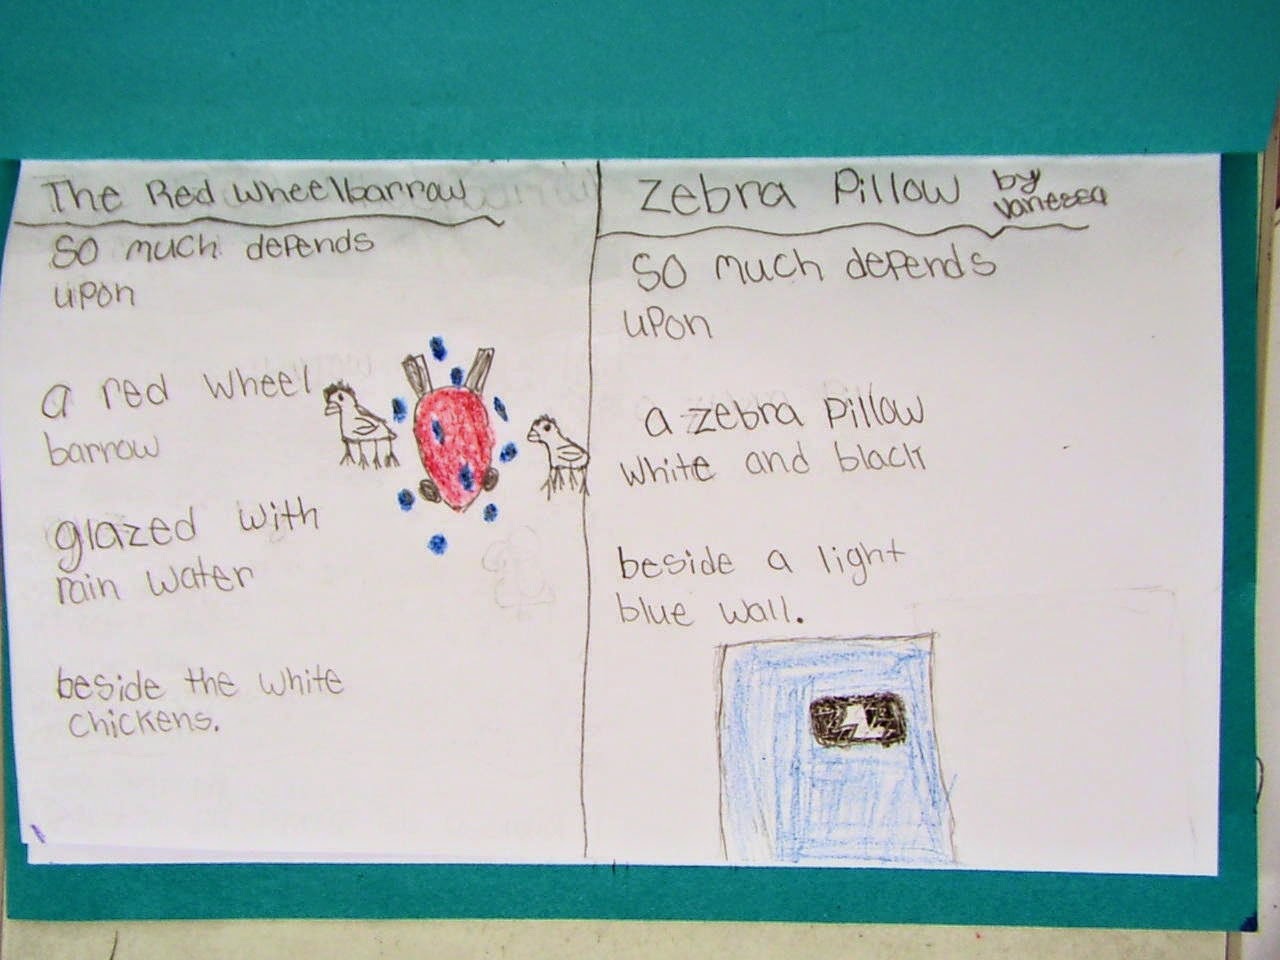 The Red Wheelbarrow
so much depends
upon
a red wheel
barrow
glazed with
rain water
beside the white
chickens.
Zebra Pillow by
Vanessa
so much depends
upon
a zebra pillow
white and black
beside a light
blue wall.